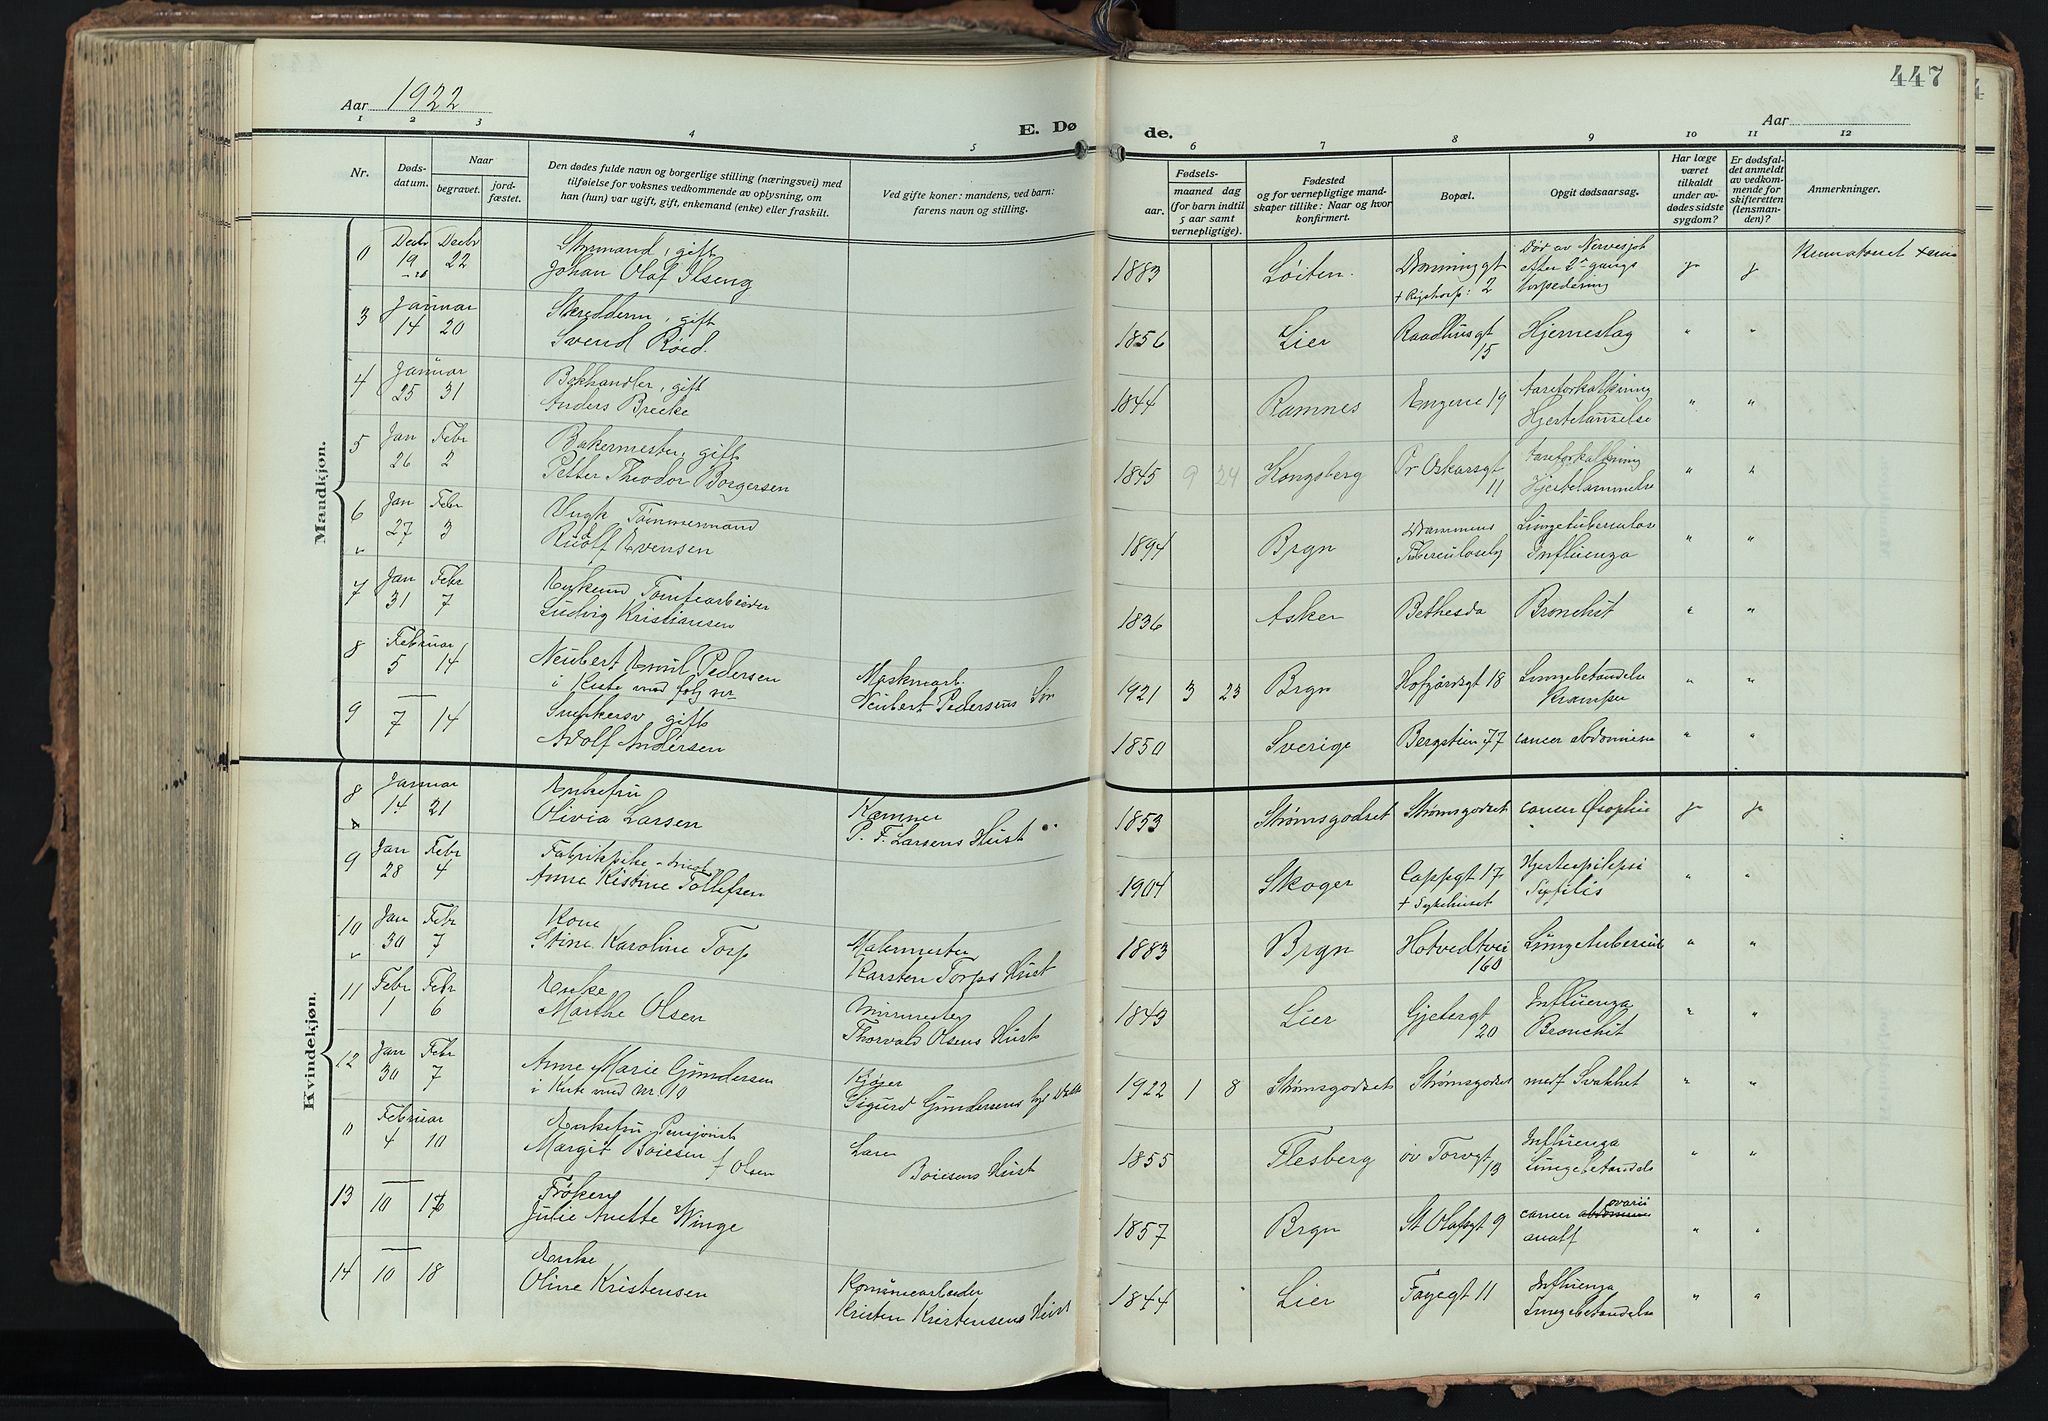 Aar 1922
E. Dø
de.
447
Aar
1 2 3 4 5 6 7 8 9 10 11 12
Nr.
Døds-
datum.
Naar
begravet.
jord-
fæstet.
Den dødes fulde navn og borgerlige stilling (næringsvei) med
tilføielse for voksnes vedkommende av oplysning, om
han (hun) var ugift, gift, enkemand (enke) eller fraskilt.
Ved gifte koner: mandens, ved barn:
farens navn og stilling.
Fødsels-
aar.
maaned dag
(for barn indtil
5 aar samt
vernepligtige).
Fødested
og for vernepligtige mand-
skaper tillike: Naar og hvor
konfirmert.
Bopæl.
Opgit dødsaarsag.
Har læge
været
tilkaldt
under av-
dødes sidste
sygdom?
Er dødsfal-
det anmeldt
av vedkom-
mende for
skifteretten
(lensman-
den)?
Anmerkninger.
Mandkjøn.
0 Decbr 19 Decbr 22 Styrmand, gift
Johan Olaf Ilseng
1883 Løiten. Dronninggt 2
Død av Nervesjok
efter 2 gangs
torpedering
ja ja
3 Januar 14 20 Skredderm, gift
Svend Röed.
1856 Lier Raadhusgt 15 Hjerneslag " "
4 Januar 25 31 Bokhandler, gift
Anders Brecke
1844 Ramnes Engene 19 Aareforkalkning
Hjertelammelse " "
5 Jan 26 Febr 2 Bakermester, gift
Petter Theodor Borgersen
1845 9 24 Kongsberg Pr Oskarsgt 11 Aareforkalkning
Hjertelammelse " "
6 Jan 27 Febr 3 Ungk Tømmermand
Rudolf Evensen
1894 Brgn Drammens
Tuberculosehj Lungetuberculos
Influenza " "
7 Jan 31 Febr 7 Enkemd, Tomtearbeider
Ludvig Kristiansen
1836 Asker Bethesda Bronchit " "
8 Februar 5 14 Neubert Emil Pedersen
i Kiste med følg nr
Maskinarb.
Neubert Pedersens Søn
1921 3 23 Brgn Hofgårdsgt 18 Lungebetændelse
Krampe " "
9 — 7 14 Snekkersv, gift
Adolf Andersen
1850 Sverige Bergstien 77 cancer abdominis " "
Kvindekjøn.
8 Januar 14 21 Enkefru
Olivia Larsen
Kæmner
P. F. Larsens Hust
1853 Strømsgodset Strømsgodset cancer Øsophii ja ja
9 Jan 28 Febr 4 Fabrikpike
Anne Kistine Tollefsen
1904 Skoger Cappgt 17
+ Sykehuset Hjerteepilepsi
Syfilis " "
10 Jan 30 Febr 7 Kone
Stine Karoline Torp
Malermester
Karsten Torps Hust
1883 Brgn Hotvedtvei 160 Lungetubercul " "
11 Febr 1 Febr 6 Enke
Marthe Olsen
Murmester
Thorvald Olsens Hust
1843 Lier Gjetergt 20 Influenza
Bronchit " "
12 Jan 30 Febr 7 Anne Marie Gundersen
i Kiste med nr 10
Kjører
Sigurd Gundersens
1922 1 8 Strømsgodset Strømsgodset medf Svakhet " "
0 Februar 4 10 Enkefru Pensjonist
Margit Boiesen f Olsen
Boiesens Hust
1855 Flesberg øv Torvgt 13 Influenza
Lungebetændelse " "
13 — 10 Frøken
Julie Anette Winge
1857 Brgn St Olafsgt 9 cancer abdominis ovarii
" "
14 — 10 18 Enke
Oline Kristensen
Komunearbeider
Kristen Kristensens Hust
1844 Lier Fayegt 11 Influenza
Lungebetændelse " "